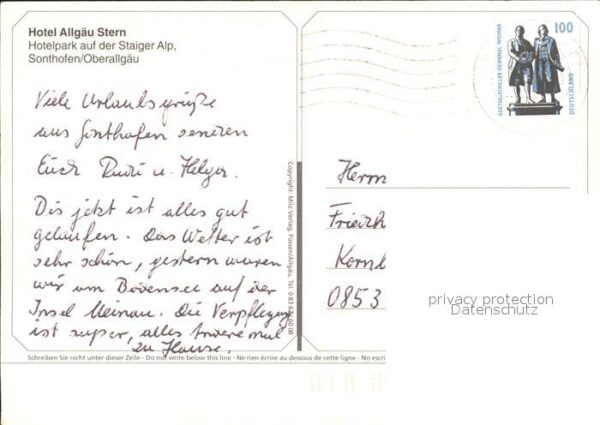 Hotel Allgäu Stern
Hotelpark auf der Staiger Alp,
Sonthofen/Oberallgäu
Viele Urlaubsgrüße
aus Sonthofen senden
Euch Rudi u. Helga.
Bis jetzt ist alles gut
gelaufen. Das Wetter ist
sehr schön, gestern waren
wir am Bodensee auf der
Insel Meinau. Die Verpflegung
ist super, alles andere mal
zu Hause.
Schreiben Sie nicht unter dieser Zeile - Do not write below this line - Ne rien écrire au dessous de cette ligne - No escri
Copyright: Milz Verlag, Füssen/Allgäu, Tel. 0 83 62/
100
GOETHE-SCHILLER-DENKMAL WEIMAR
DEUTSCHLAND
Herrn
Friedh
Kornb
0853
privacy protection
Datenschutz